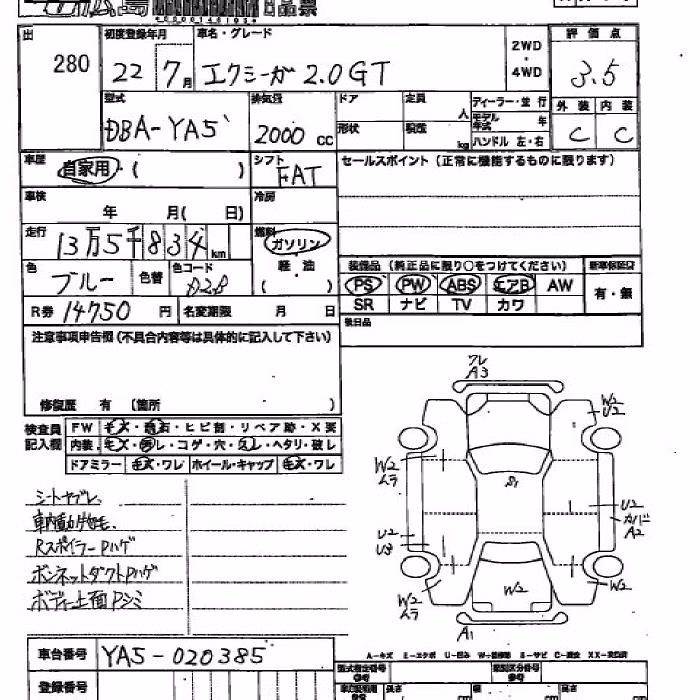 広島
票
出 280
初度登録年月 22 7月
車名・グレード エクシーガ 2.0GT
2WD・4WD
評価点 3.5
型式 DBA-YA5
排気量 2000 cc
ドア 形状
定員 人 積載 kg
ディーラー・並行
モデル年式 年
ハンドル 左・右
外装 C 内装 C
車歴 自家用・( )
シフト FAT
セールスポイント(正常に機能するものに限ります)
車検 年 月( 日)
冷房
走行 13万5千834km
燃料 ガソリン 軽・油 ( )
色 ブルー 色替 色コード D2B
装備品(純正品に限り○をつけてください)
PS PW ABS エアB AW
SR ナビ TV カワ
新車保証書 有・無
R券 14750円 名変期限 月 日
後日品
注意事項申告欄(不具合内容等は具体的に記入して下さい)
修復歴 有 〔箇所 〕
検査員記入欄
FW キズ・飛石・ヒビ割・リペア跡・X要
内装 キズ・汚レ・コゲ・穴・スレ・ヘタリ・破レ
ドアミラー キズ・ワレ ホイール・キャップ キズ・ワレ
シートヤブレ
Rスポイラー Pハゲ
ボンネットダクトPハゲ
ボディー上面Pシミ
ワレ
A3
W2
U2
W2
ムラ
S1
U2
カバー
A2
U2
U3
W2
W2
ムラ
W2
A1
A-キズ E-エクボ U-凹み W-補修跡 S-サビ C-腐食 XX-交換済
車台番号 YA5-020385
登録番号
型式指定番号
類別区分番号
長さ cm 幅 cm 高さ cm